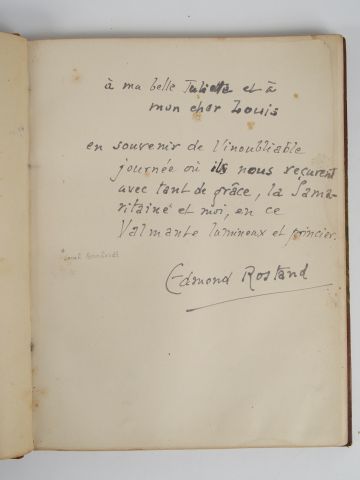 à ma belle Juliette et à
mon cher Louis
en souvenir de l'inoubliable
journée où ils nous reçurent
avec tant de grâce, la Sama-
ritaine et moi, en ce
Valmante lumineux et princier.
Sarah Bernhardt
Edmond Rostand